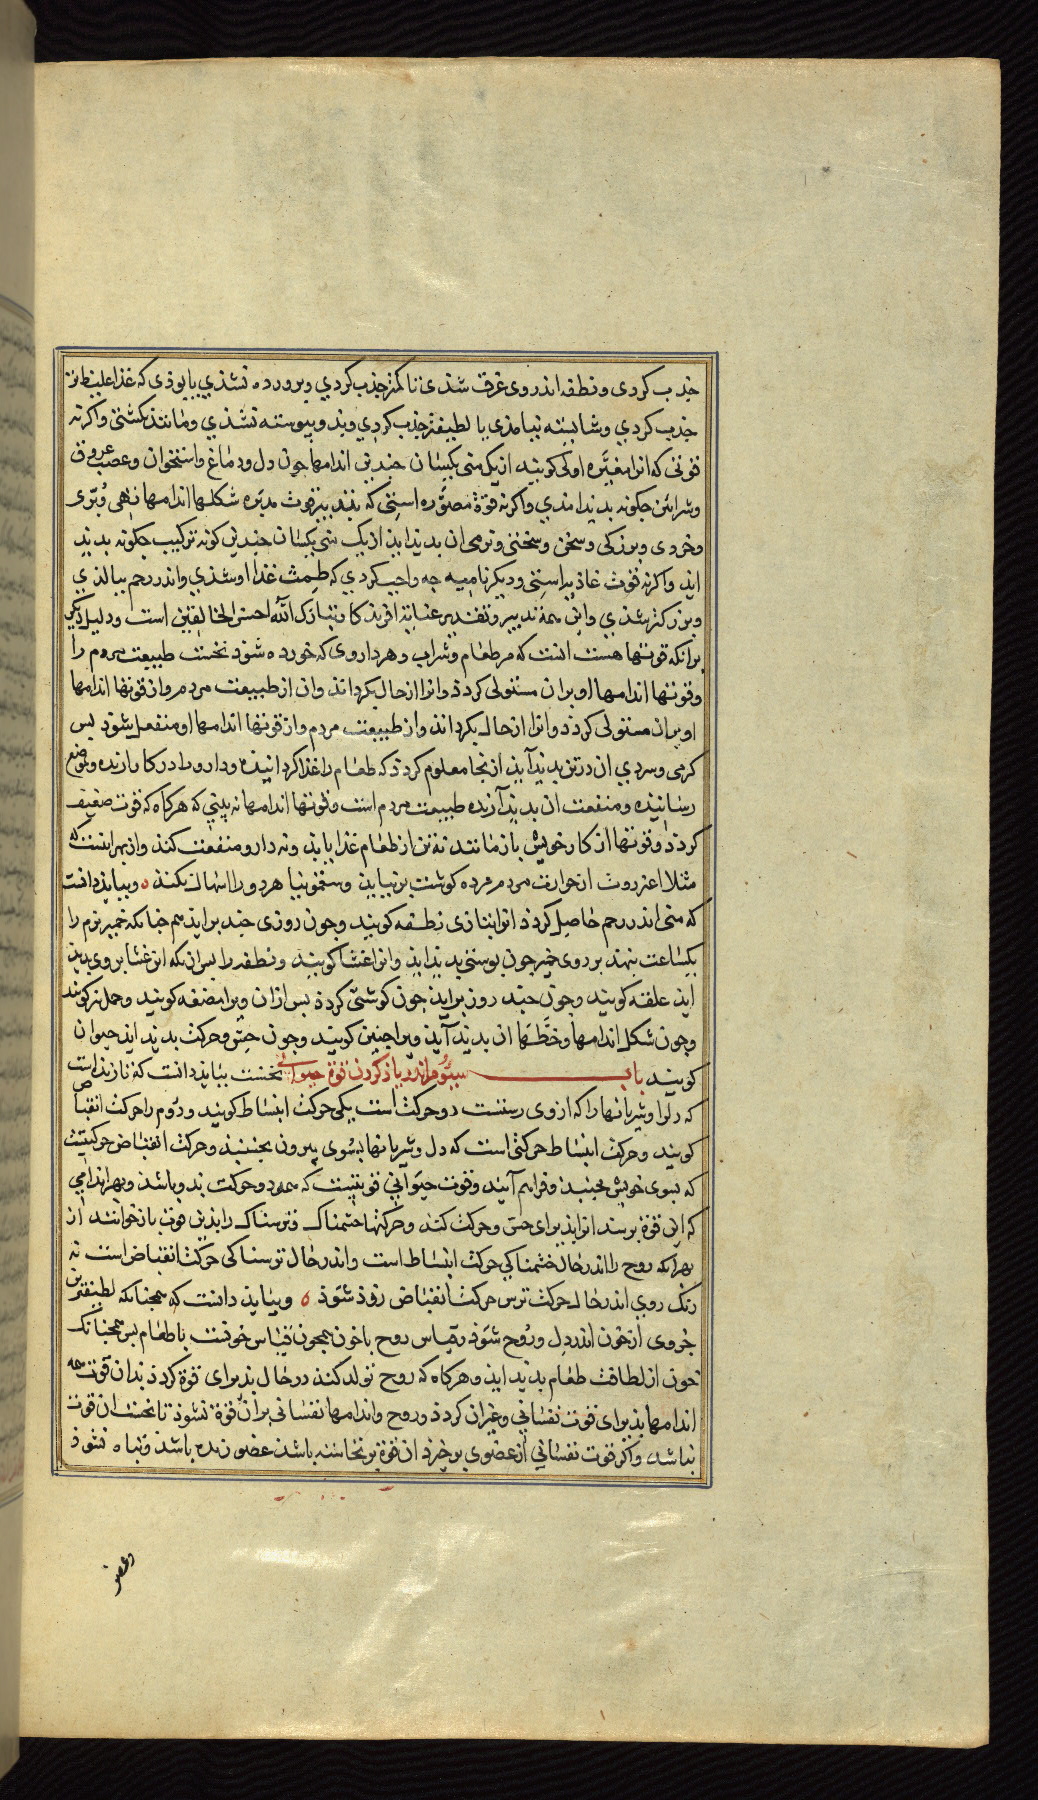 جذب کردی و نطفه اندر وی غرق شدی تا کمتر جذب کردی و پرورده نشدی یا بوذی که غذا غلیظ تر
جذب کردی و شایسته نیامدی یا لطیفتر جذب کردی و بند و پیوسته نشدی و مانند کشتی و اکر نه
قوتی که انرا مغیّره اولی کویند از یک منی یکسان چندین اندامها چون دل و دماغ و استخوان و عصب و عروق
و شرائین چکونه بدید امدی و اکر نه قوة مصوّره استی که بند بیر قوت مدبره شکلها اندامها نهی و بُری
و خردی و بزرکی و سخن و سختی و نرمی ان بدید اید از یک شی یکسان چندین کونه ترکیب چکونه بدید
اید و اکر نه قوت غاذیه استی و دیکر نامیه چه واجب کردی که طمث غذا او شدی و اندر رحم ببالذی
و بزرکتر شدی و این همه تدبیر و تقدیر عنایة افریذکار تبارک الله احسن الخالقین است و دلیل دیکر
برانکه قوتها هست انست که هر طعام و شراب و هر داروی که خورده شود نخست طبیعت مردم را
و قوتها اندامها او بران مستولی کردد و انرا از حال بکرداند و ان از طبیعت مردم و از قوتها اندامها
او بران مستولی کردد و انرا از حال بکرداند و از طبیعت مردم و از قوتها اندامها او منفعل شود پس
کرمی و سردی ان در تن بدید آید از نجا معلوم کردد که طعام را غذا کرداننده و دارو را در کار ارنده و بموضع
رساننده و منفعت ان بدید آرنده طبیعت مردم است و قوتها اندامها نه بینی که هرکاه که قوت ضعیف
کردد و قوتها از کار خویش باز مانند نه تن از طعام غذا یابد و نه دارو منفعت کند و از بهر اینست که
مثلا اعنزروت از حوارت مردم مرده کوشت بر نیاید و سقمونیا هر دو را اسهال نکند ه و بباید دانست
که منی اندر رحم حاصل کردد انرا بتازی نطفه کویند و چون روزی چند براید هم چنانکه خمیر نرم را
یکساعت بنهند بر روی خمیر چون پوستی بدید اید و انرا غشا کویند و نطفه را پس ازانکه ان غشا بر وی بدید
اید علقه کویند و چون چند روز براید چون کوشتی کردد پس ازان ویرا مضغه کویند و حمل نیز کویند
و چون شکل اندامها و خطّها ان بدید آید ویرا جنین کویند و چون حس و حرکت بدید اید حیوان
کویند باب سیّوم اندر یاذ کردن قوة حیوانی نخست بباید دانست که تا زنده است
که دل را و شریانها را که از وی رستست دو حرکت است یکی حرکت انبساط کویند و دوم را حرکت انقباض
کویند و حرکت انبساط حرکتی است که دل و شریانها بسوی بیرون بجنبند و حرکت انقباض حرکتیست
که بسوی خویش بجنبد و فراهم آیند و قوت حیوانی قوتیست که مدد و حرکت بدو باشد و بهر اندامی
که این قوة برسد انرا پذیرای حس و حرکت کند و حرکتها خشمناک و ترسناک را بدین قوت باز خوانند از
بهرانکه روح را اندر حال خشمناکی حرکت انبساط است و اندر حال ترسناکی حرکت انقباض است نه
رنک روی اندر حال حرکت ترس حرکت انقباض زرد شود ه و بباید دانست که همچنانکه لطیفترین
جزوی از خون اندر دل و روح شود و قیاس روح با خون همچون قیاس خونست با طعام پس همچنانک
خون از لطافت طعام بدید اید و هرکاه که روح تولد کند در حال پذیرای قوة کردد بدان قوت همه
اندامها پذیرای قوت نفسانی و غیر ان کردد و روح و اندامها نفسانی بران قوة نشود تا نخست ان قوت
نباشد و اکر قوت نفسانی از عضوی برخیزد ان قوة برنخاسته باشد عضو زنده باشد و تباه نشود
و عضو